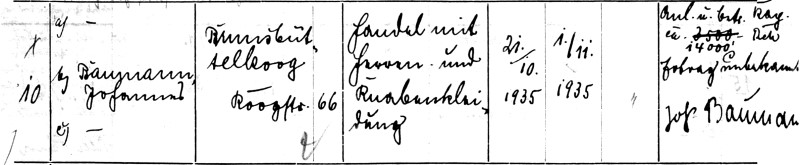 a) —
x
10
b) Baumann,
Johannes
c) —
Brunsbüt-
telkoog
Koogstr. 66
Handel mit
Herren- und
Knabenklei-
dung
21.
/10.
1935
1./11.
1935
"
Anl. u. betr. Kap.
ca. 3500 Rm
14000
Ertrag unbekannt
Joh. Bauman